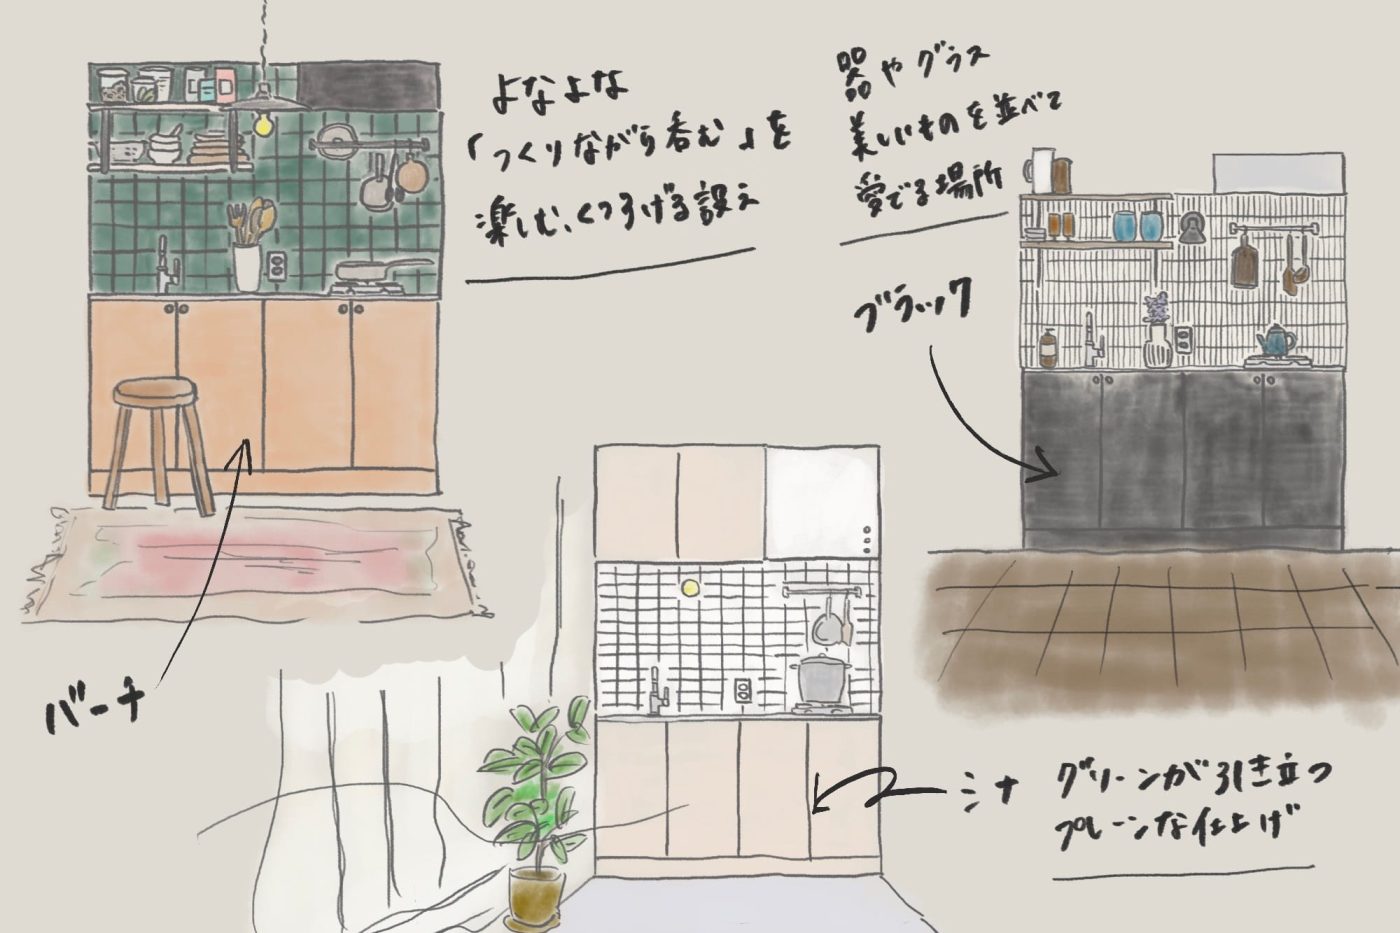 よなよな
「つくりながら呑む」を
楽しむ、くつろげる設え
器やグラス
美しいものを並べて
愛でる場所
ブラック
バーチ
シナ
グリーンが引き立つ
プレーンな仕上げ